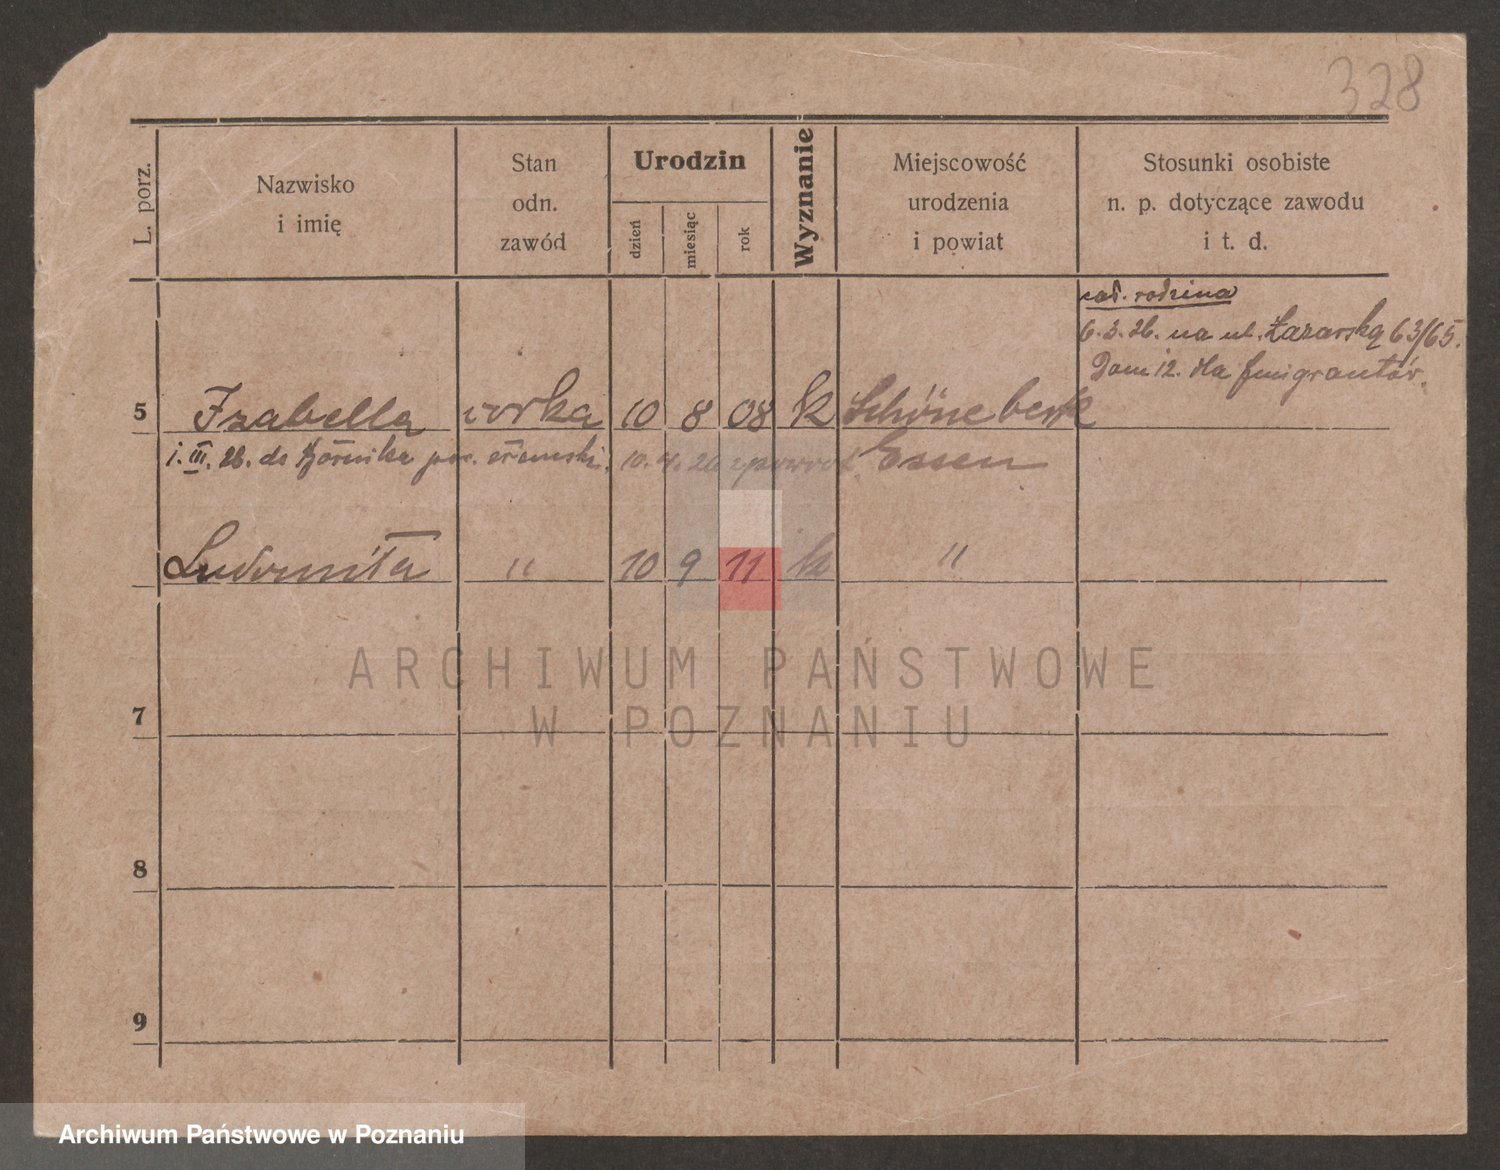 328
L. porz.
Nazwisko
i imię
Stan
odn.
zawód
Urodzin
dzień
miesiąc
rok
Wyznanie
Miejscowość
urodzenia
i powiat
Stosunki osobiste
n. p. dotyczące zawodu
i t. d.
rodzina
6.3.26. na ul. 63/65.
Dom 12. dla Emigrantów.
5 Izabella corka 10 8 08 k Schönebeck
1. III. 26. do Kórnika pow. śremski. 10. 4. 26 zpowrot Essen
Ludomiła " 10 9 11 k "
ARCHIWUM PAŃSTWOWE
W POZNANIU
7
8
9
Archiwum Państwowe w Poznaniu